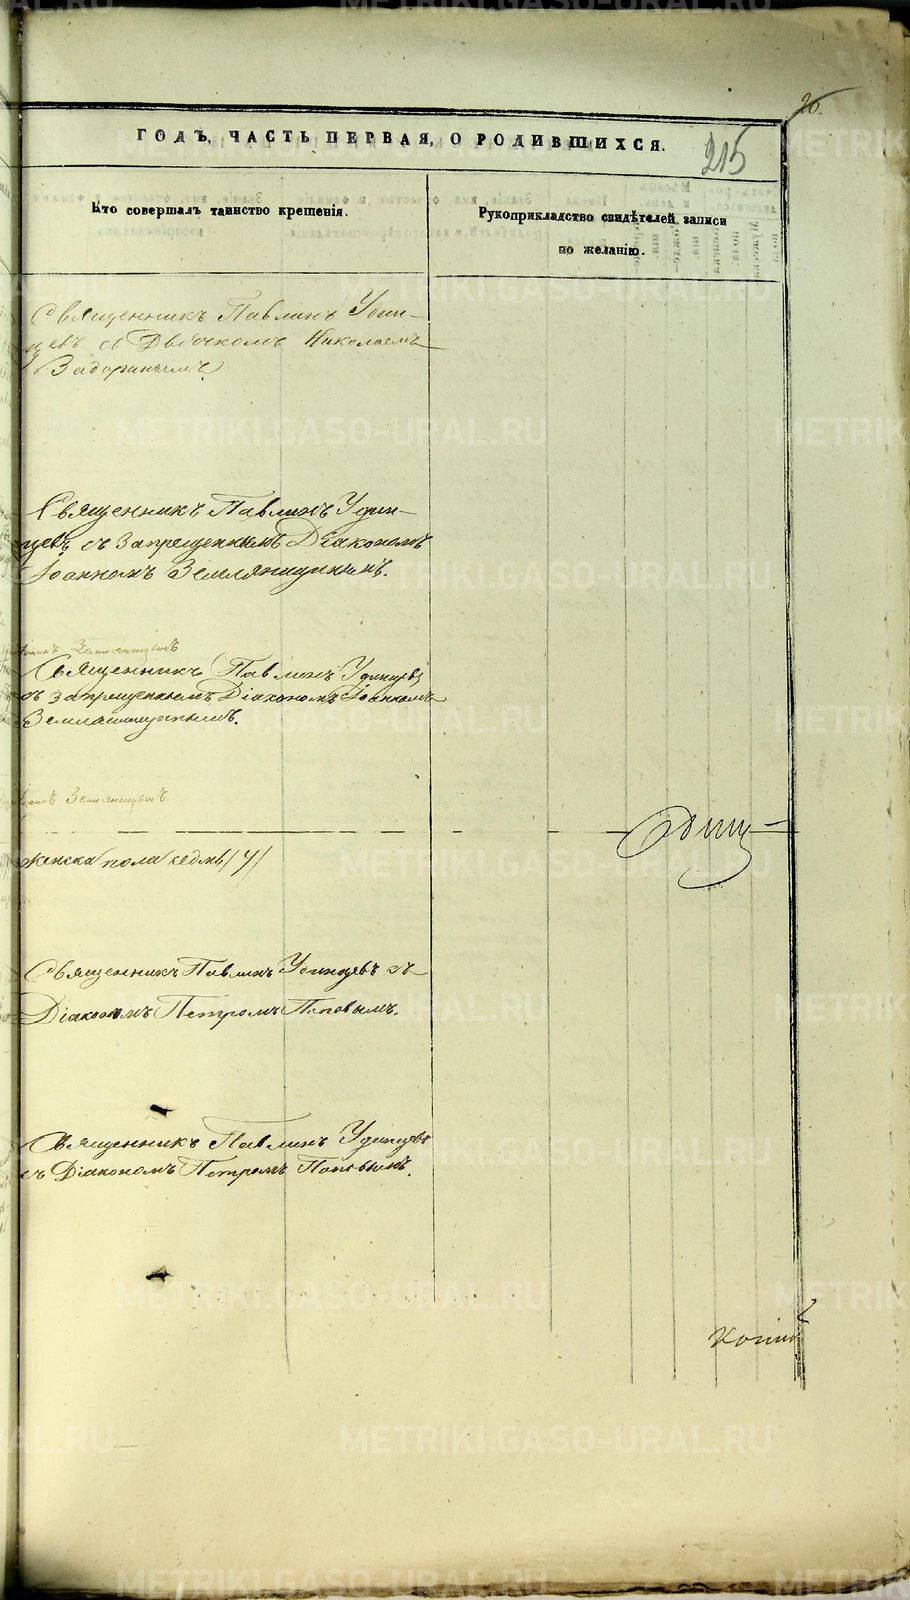 26.
ГОДЪ, ЧАСТЬ ПЕРВАЯ, О РОДИВШИХСЯ.
215
Кто совершалъ таинство крещенія.
Рукоприкладство свидѣтелей записи
по желанію.
Священникъ Павлинъ Удин-
цевъ съ Дьячкомъ Николаемъ
Задоринымъ
Священникъ Павлинъ Удин-
цевъ съ запрещеннымъ Діакономъ
Іоанномъ Земляницинымъ.
Священникъ Павлинъ Удинцевъ
съ запрещеннымъ Діакономъ Іоанномъ
Земляницинымъ.
женска пола седмь /7/
Священникъ Павлинъ Удинцевъ съ
Діакономъ Петромъ Поповымъ.
Священникъ Павлинъ Удинцевъ
съ Діакономъ Петромъ Поповымъ.
METRIKI.GASO-URAL.RU